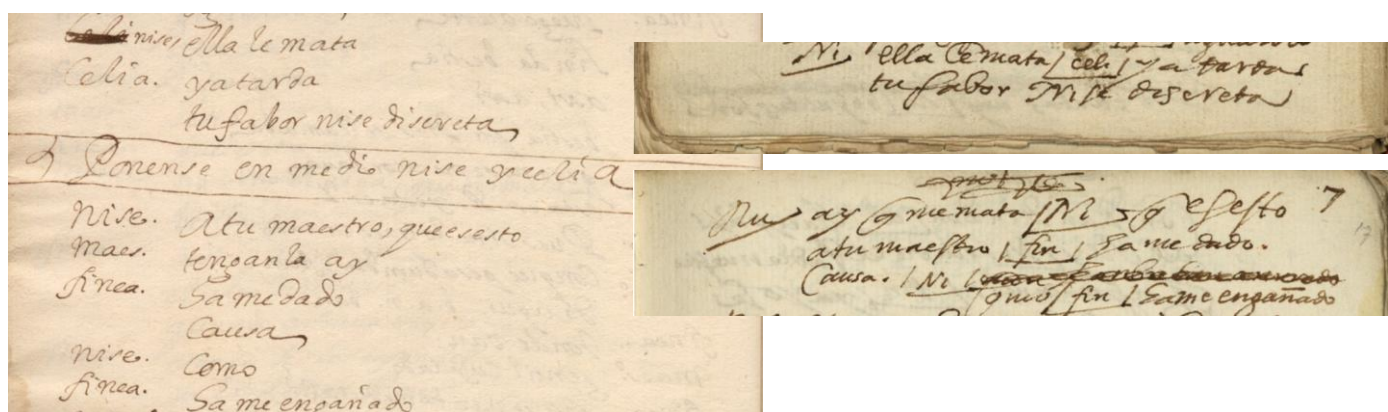 nise, ella le mata
Celia. ya tarda
tu fabor nise discreta
Ponense en medio nise y celia
nise. A tu maestro, que es esto
maes. tenganla ay
finea. Ha me dado
Causa
nise. Como
finea. Ha me engañado
Ni ella le mata / celi / ya tarda
tu fabor Nise discreta
Ru ay q me mata / Ni / q es esto 7
17
a tu maestro / fin / Ha me dado.
Causa. / Ni /
como / fin / Ha me engañado